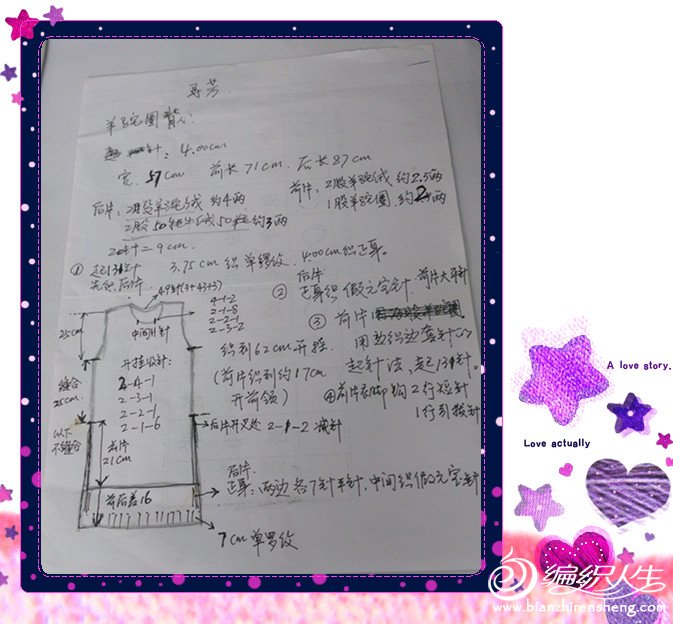 寻芳.
羊驼圈背心
针: 4.00cm
宽. 57cm 前长71cm. 后长87cm
后片: 2股羊驼绒 约4两
2股50牦牛绒50羊毛 约3两
前片: 2股羊驼绒 约2.5两
1股羊驼圈. 约2两
20针=9cm.
① 起131针 3.75cm织单罗纹. 4.00cm织正身.
先织后片.
② 后片正身织假元宝针. 前片大平针
③ 前片
用边织边套针的
起针法, 起131针.
④ 前片右脚钩2行短针
1行引拔针
49针(3+43+3)
4-1-2
2-1-8
2-2-1
2-3-2
25cm
开挂收针:
2-4-1
2-3-1
2-2-1
2-1-6
织到62cm开挂.
(前片织到约17cm
开前领)
缝合
25cm
以下
不缝合
后片开叉处 2-1-2 减针
前片
21cm
前后差16
后片.
正身: 两边各7针平针, 中间织假元宝针
7cm单罗纹
A love story.
Love actually
编织人生
www.bianzhirensheng.com